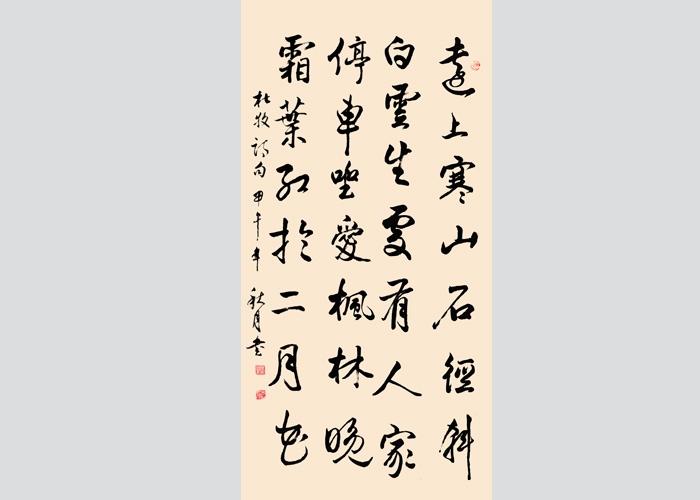 遠上寒山石徑斜
白雲生處有人家
停車坐愛楓林晚
霜葉紅於二月花
杜牧詩句 甲午年 秋月書